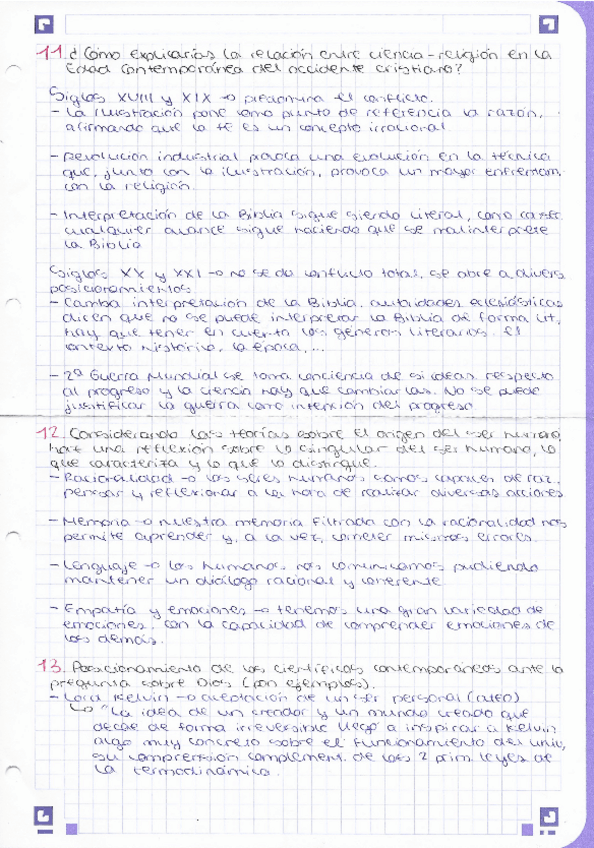 11. ¿Cómo explicarías la relación entre ciencia-religión en la
Edad Contemporánea del occidente cristiano?
Siglos XVIII y XIX → predomina el conflicto.
- La Ilustración pone como punto de referencia la razón,
afirmando que la fe es un concepto irracional.
- Revolución industrial provoca una evolución en la técnica
que, junto con la ilustración, provoca un mayor enfrentam.
con la religión.
- Interpretación de la Biblia sigue siendo literal, como
cualquier avance sigue haciendo que se malinterprete
la Biblia
Siglos XX y XXI → no se da conflicto total, se abre a divers.
posicionamientos.
- Cambia interpretación de la Biblia, autoridades eclesiásticas
dicen que no se puede interpretar la Biblia de forma lit,
hay que tener en cuenta los géneros literarios. El
contexto histórico, la época, ...
- 2ª Guerra Mundial se toma conciencia de si ideas respecto
al progreso y la ciencia hay que cambiarlas. No se puede
justificar la guerra como intención del progreso
12. Considerando las teorías sobre el origen del ser humano,
haz una reflexión sobre lo singular del ser humano, lo
que caracteriza y lo que lo distingue.
- Racionalidad → los seres humanos somos capaces de raz.
pensar y reflexionar a la hora de realizar diversas acciones
- Memoria → nuestra memoria filtrada con la racionalidad nos
permite aprender y, a la vez, cometer mismos errores.
- Lenguaje → los humanos nos comunicamos pudiendo
mantener un diálogo racional y coherente
- Empatía y emociones → tenemos una gran variedad de
emociones, con la capacidad de comprender emociones de
los demás.
13. Posicionamiento de los científicos contemporáneos ante la
pregunta sobre Dios (con ejemplos).
- Lord Kelvin → aceptación de un ser personal
↳ "La idea de un creador y un mundo creado que
decae de forma irreversible llegó a inspirar a Kelvin
algo muy concreto sobre el funcionamiento del univ,
su comprensión complement. de las 2 prim. leyes de
la termodinámica.